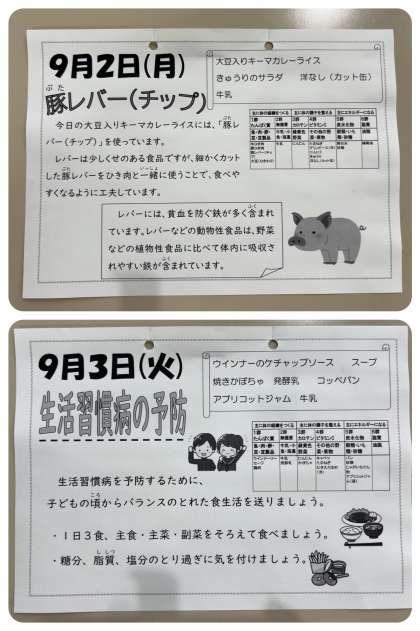 9月2日(月)
大豆入りキーマカレーライス
きゅうりのサラダ 洋なし(カット缶)
牛乳
ぶた
豚レバー(チップ)
今日の大豆入りキーマカレーライスには、「豚レ
バー(チップ)」を使っています。
レバーは少しくせのある食品ですが、細かくカット
した豚レバーをひき肉と一緒に使うことで、食べや
すくなるように工夫しています。
レバーには、貧血を防ぐ鉄が多く含まれ
ています。レバーなどの動物性食品は、野菜
などの植物性食品に比べて体内に吸収さ
れやすい鉄が含まれています。
9月3日(火)
ウインナーのケチャップソース スープ
焼きかぼちゃ 発酵乳 コッペパン
アプリコットジャム 牛乳
生活習慣病の予防
生活習慣病を予防するために、
子どもの頃からバランスのとれた食生活を送りましょう。
・1日3食、主食・主菜・副菜をそろえて食べましょう。
・糖分、脂質、塩分のとり過ぎに気を付けましょう。